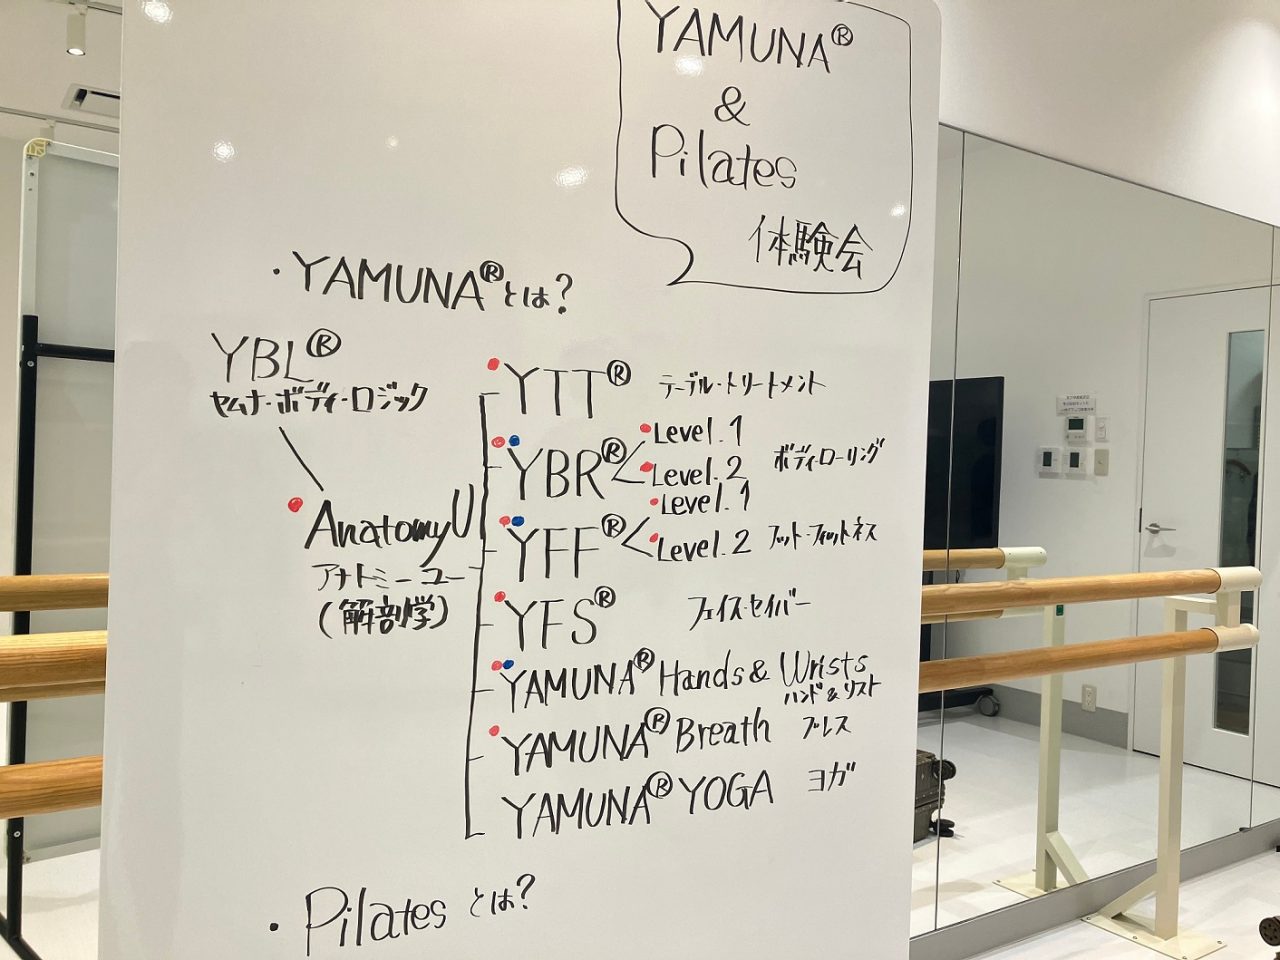 YAMUNA®
&
Pilates
体験会
・YAMUNA®とは?
YBL®
ヤムナ・ボディ・ロジック
AnatomyU
アナトミーユー
(解剖学)
YTT® テーブル・トリートメント
YBR® Level.1
Level.2 ボディローリング
YFF® Level.1
Level.2 フット・フィットネス
YFS® フェイス・セイバー
YAMUNA® Hands & Wrists
ハンド&リスト
YAMUNA® Breath ブレス
YAMUNA® YOGA ヨガ
・Pilatesとは?